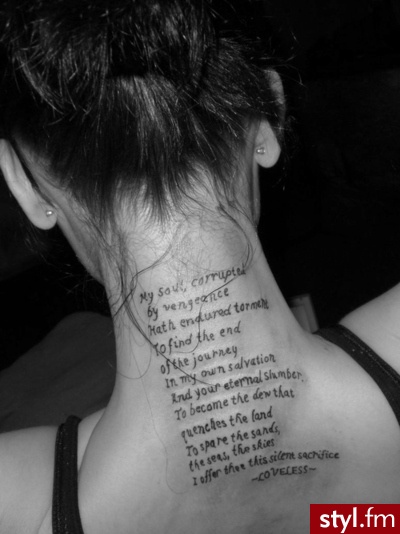 My soul, corrupted
by vengeance
Hath endured torment
To find the end
of the journey
In my own salvation
And your eternal slumber,
To become the dew that
quenches the land
To spare the sands,
the seas, the skies
I offer thee this silent sacrifice
~LOVELESS~
styl.fm